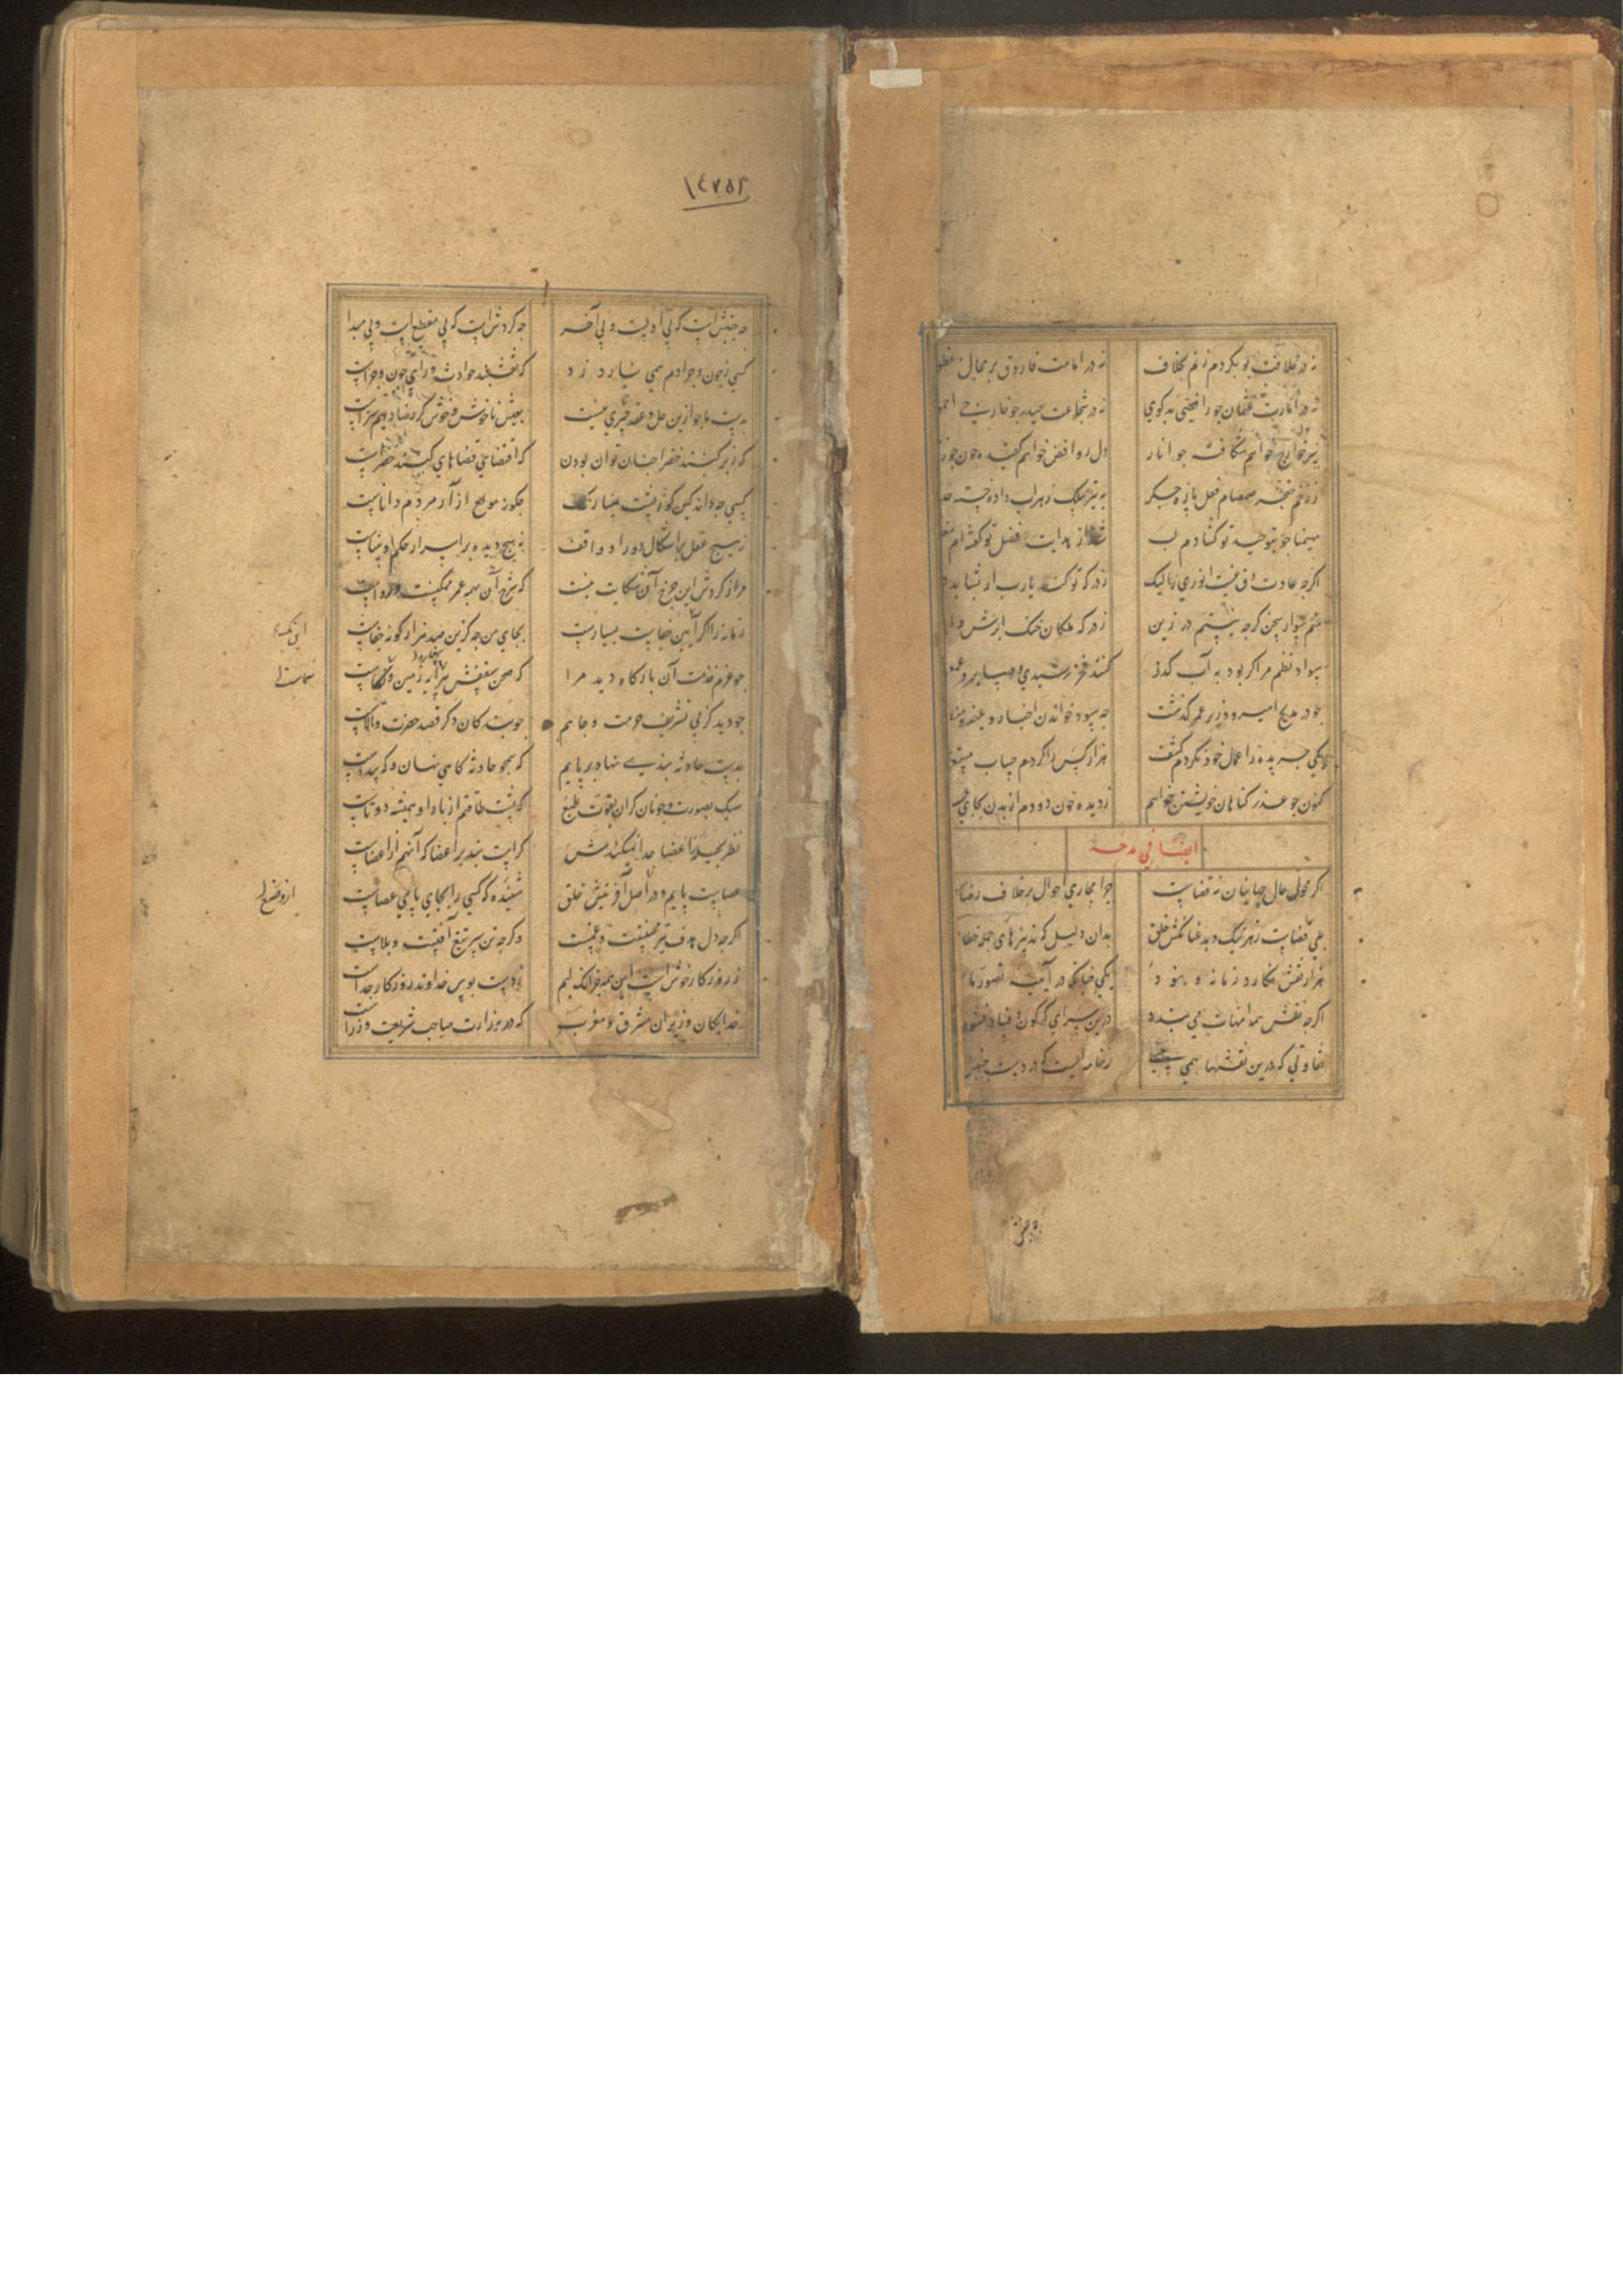 نه در خلافت بوبکر دم زنم بخلاف نه در امامت فاروق بر مجال
نه در امارت عثمان چو رافضی بدگوی نه در شجاعت حیدر چو خارجی
خوارج خواهم شکافته چو انار دل روافض خواهم کفیده چون جوز
ز زخم خنجر صمصام فعل پاره جگر به تیر ملک زهراب داده خسته
چو بتوحید تو گشادم لب از هدایت فضل تو گفته‌ام
اگرچه عادت انوری ز درکه تو کند یارب ار
منم سوار سخن گرچه نیستم در زین
سواد نظم مرا گر بود به آب گذر کنند فخر رشیدی و صابر و
چو در مدیح امیر و وزیر عمر گذشت چه سود خواندن اخبار
یکی جریده ز اعمال خود نکردم کشف هزار کس را کردم حساب
کنون چو عذر گناهان خویشتن خواهم ز دیده خون دودم از بدن بجای
ایضا فی مدحه
اگر محول حال جهانیان نه قضاست چرا مجاری احوال بر خلاف رضاست
بلی قضاست زهر نیک و بد عنانکش خلق بدان دلیل که تدبیرهای جمله خطا
هزار نقش نگارد زمانه و نبود یکی چنانکه در آینه تصور ما
اگرچه نقش همه امهات می بندد درین سرای که کون و فساد و نشو
تفاوتی که درین نقشها همی بینی ز خامه‌ایست که در دست جنبش
١٤٧٥٢
چه جنبش است که بی اولست و بی آخر چه گردش است که بی مقطع است و بی مبدا
کسی ز چون و چرا دم همی نیارد زد که نقشبند حوادث ورای چون و چراست
بدست ما چو ازین حل و عقد چیزی نیست بعیش ناخوش و خوش گر رضا دهیم سزاست
که زیر گنبد خضرا چنان توان بودن که اقتضای قضاهای گنبد خضراست
کسی چه داند کین کوژپشت مینا رنگ چگونه مولع آزار مردم داناست
نه هیچ عقل بر اشکال دور او واقف نه هیچ دیده بر اسرار حکم او بیناست
مرا ز گردش این چرخ آن شکایت نیست که شرح آن همه عمر ممکنست و رواست
زمانه را اگر این جفاست بسیارست بجای من چه کزین صد هزار گونه جفاست
چو عزم خدمت آن بارگاه دید مرا که صحن سقفش بر زمین
چو دید کز پی تشریف حرمت و جاهم چو بندگان دگر قصد حضرت والاست
بدست حادثه بندی نهاد بر پایم که همچو حادثه گاهی نهان و گه پیداست
سبک بصورت و چونان گران بقوت طبع که پشت طاقتم از بار او همیشه دوتاست
نظر بحیله ز اعضا جدا نمیکندش گر است بند بر اعضا که آنهم از اعضاست
عصاست پایم و در اصل آفرینش خلق شنیده که کسی را بجای پای عصاست
اگرچه دل هدف تیر محنتست و غمست وگرچه تن سپر تیغ آفتست و بلاست
ز روزگار خوش است این همه جز آنک لبم ز دست بوس خداوند روزگار جداست
خدایگان وزیران مشرق و مغرب که در وزارت صاحب شریعت وزراست